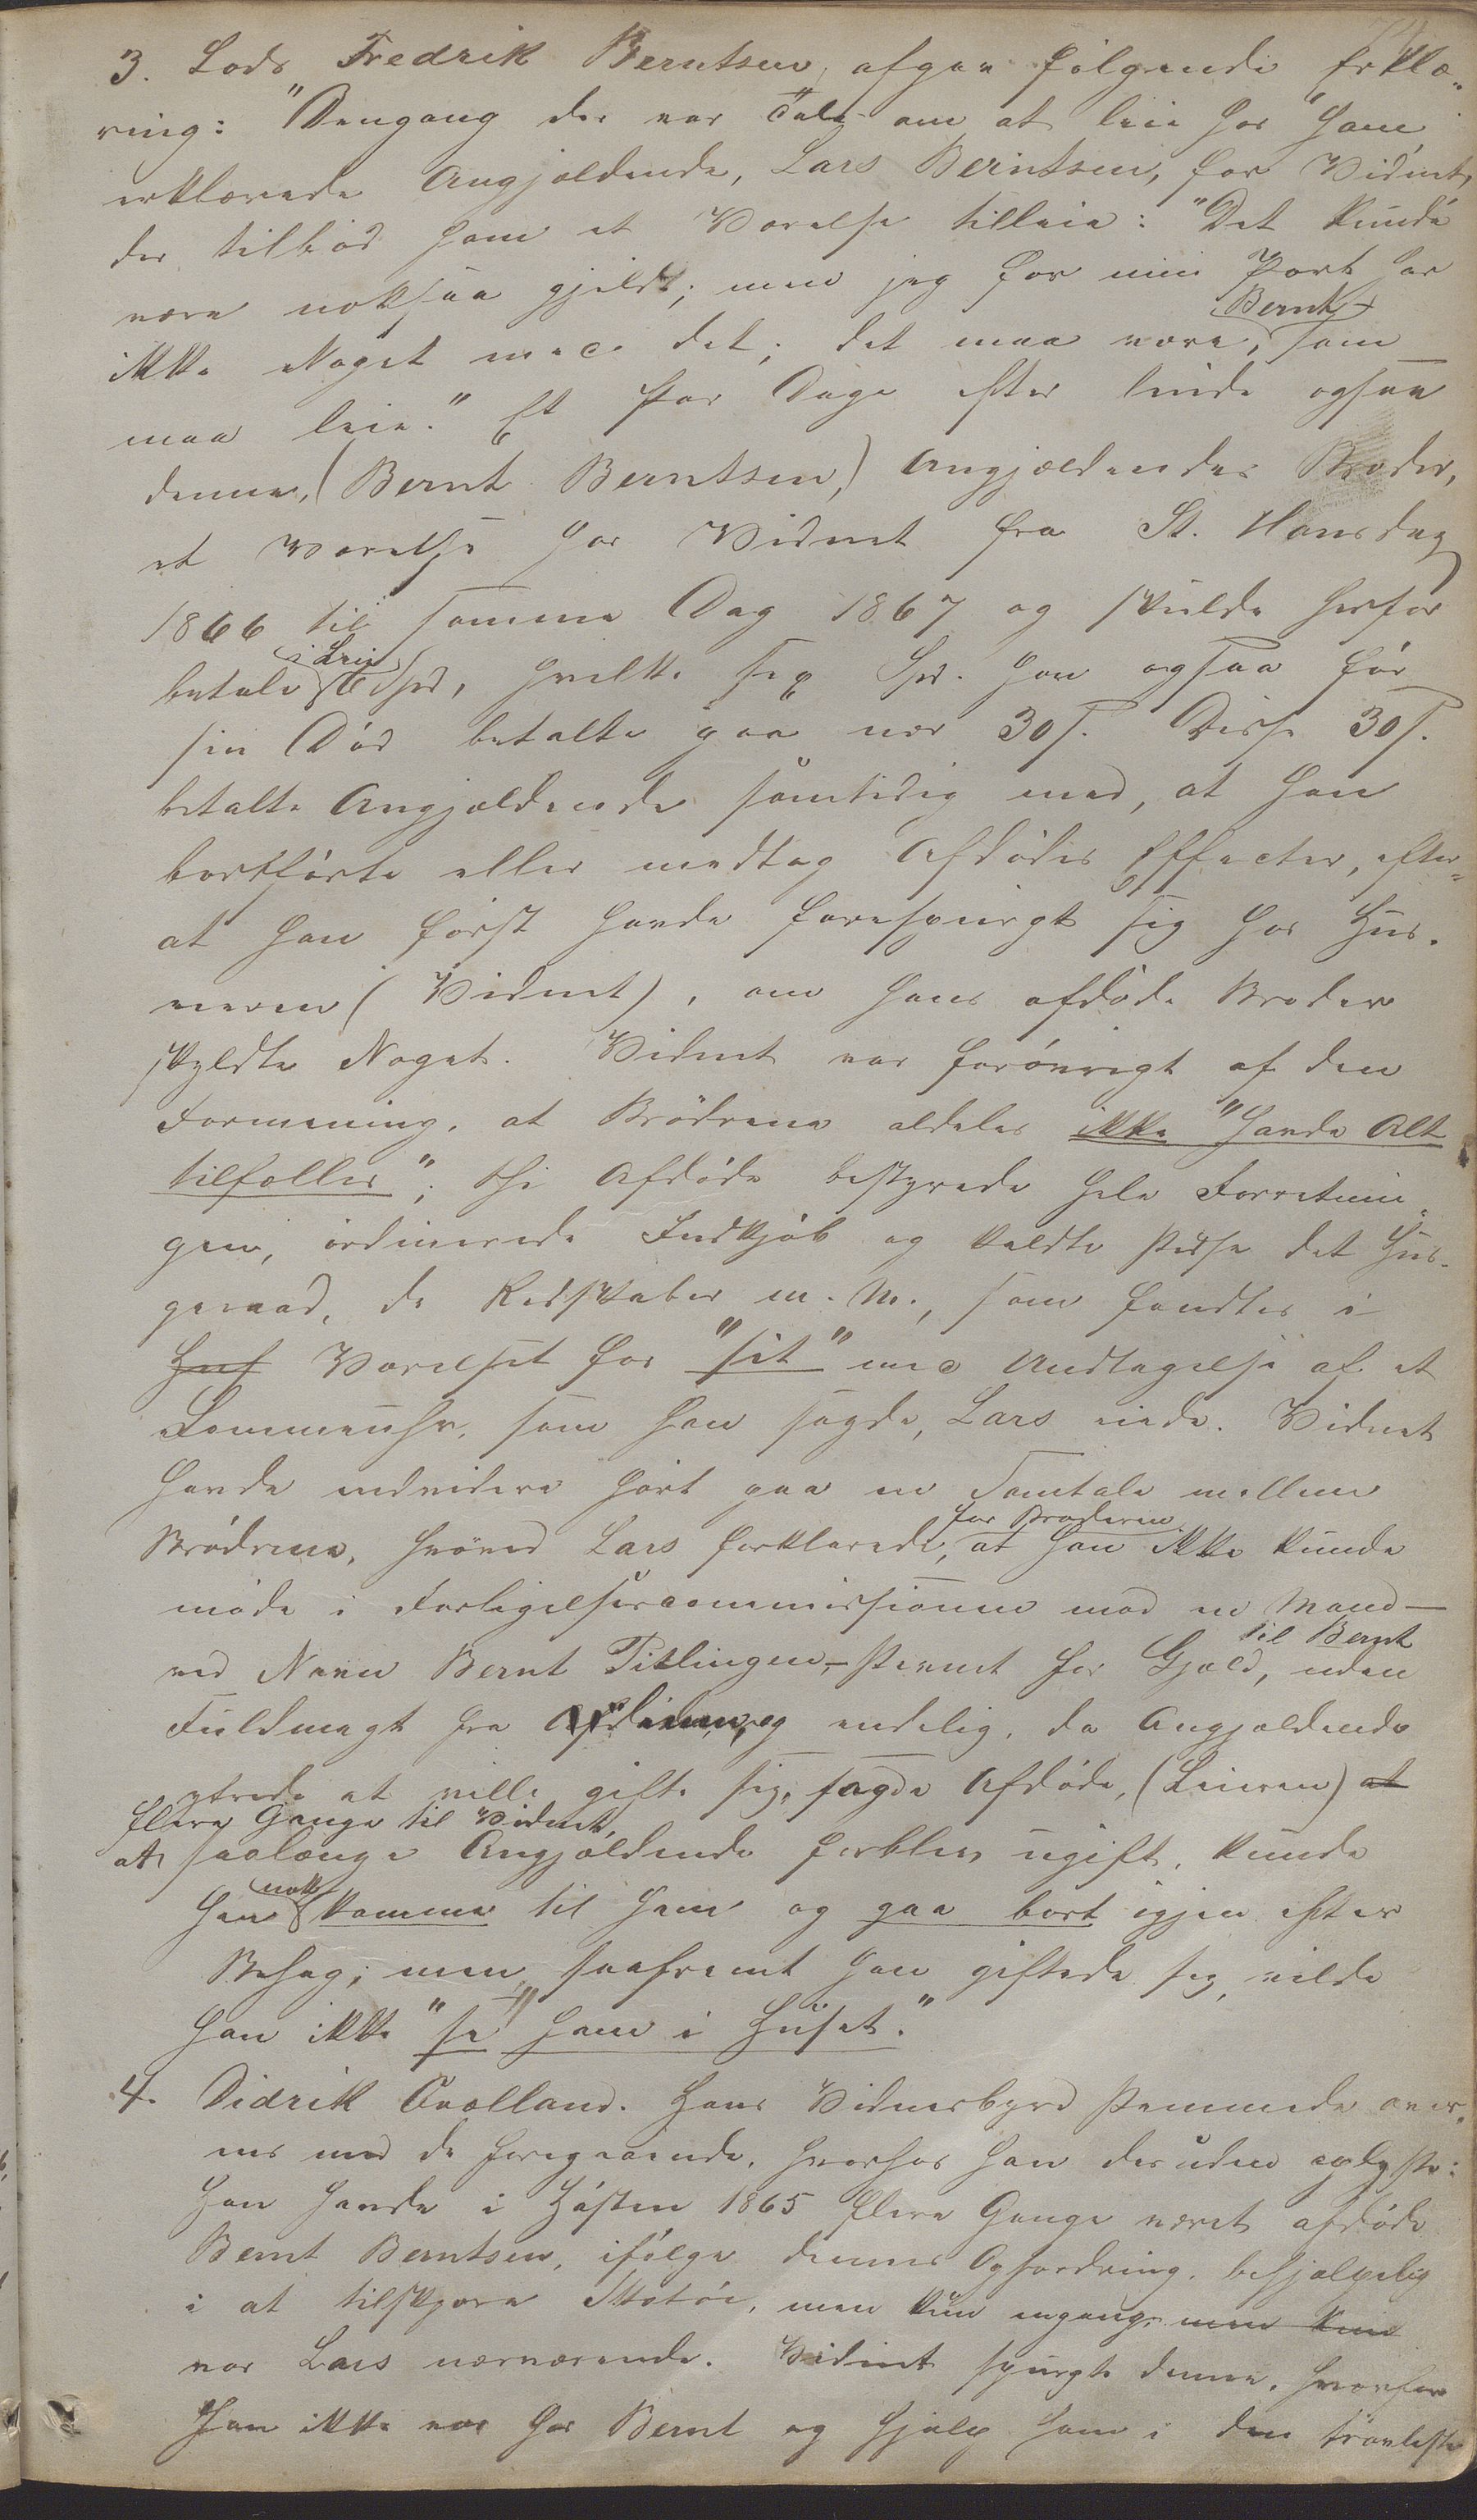 3. Lods Fredrik Berntsen, afgav følgende Erklæ„
ring: "Dengang der var Tale om at leie hos "ham
erklærede Angjældende, Lars Berntsen, for Vidnet,
der tilbød ham et Værelse tilleie: "Det kunde
være noksaa gjeldt; men jeg for min Part har
ikke Noget med det; det maa være, Bernt som
maa leie." Et Par Dage efter leiede ogsaa
denne, (Bernt Berntsen,) Angjældendes Broder,
et Værelse hos Vidnet fra St. Hansdag
1866 til samme Dag 1867 og skulde herfor
betale i Leie 6 Spd, hvilke sex Spd. han ogsaa før
sin Død betalte paa nær 30 s. Disse 30 s.
betalte Angjældende samtidig med, at han
bortførte eller medtog Afdødes Effecter, efter„
at han først havde forespurgt sig hos Hus„
eieren (Vidnet), om hans afdøde Broder
skyldte Noget. Vidnet var forøvrigt af den
Formening, at Brødrene aldeles ikke "havde Alt
tilfælles"; thi Afdøde bestyrede hele Forretnin„
gen, ordinerede Indkjøb og kaldte disse det Hus„
geraad, de Redskaber m. M., som fandtes i
Hus Værelset for "sit" med Undtagelse af et
Lommeuhr, som han sagde, Lars eiede. Vidnet
havde endvidere hørt paa en Samtale mellem
Brødrene, hvorved Lars forklarede, for Broderen at han ikke kunde
møde i Forligelsescommissionen mod en Mand –
ved Navn Bernt Titlingen, – stevnet for Gjæld, til Bernt uden
Fuldmagt fra Afdøde, og endelig, da Angjældende
ytrede at ville gifte sig, sagde Afdøde, (Leieren) at
flere Gange til Vidnet,
at saalænge Angjældende forblev ugift, kunde
han nok komme til ham og gaa bort igjen efter
Behag; men saafremt han giftede sig, vilde
han ikke "se" ham i Huset."
4. Didrik Qvælland. Hans Vidnesbyrd stemmede over„
ens med de foregaaende, hvorhos han desuden oplyste:
Han havde i Høsten 1865 flere Gange været afdøde
Bernt Berntsen, ifølge dennes Opfordring, behjælpelig
i at tilskjære Skotøi, men kun engang men kun
var Lars nærværende. Vidnet spurgte denne, hvorfor
han ikke var hos Bernt og hjalp ham i den travleste